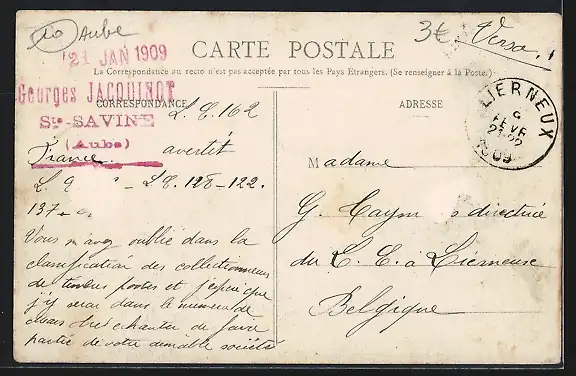 10 Aube
3€ Verso
21 JAN 1909
CARTE POSTALE
La Correspondance au recto n'est pas acceptée par tous les Pays Étrangers. (Se renseigner à la Poste.)
Georges JACQUINOT
CORRESPONDANCE
L. E. 162
Ste-SAVINE
(Aube)
France. avertit
L. 9 - L.E. 118-122.
137-
Vous m'avez oublié dans la
classification des collectionneurs
de timbres postes et j'espère que
j'y serai dans le numéro de
mars de faire
partie de votre aimable société
ADRESSE
LIERNEUX
9
FEVR
1909
Madame
G. directrice
du L. E. à Lierneux
Belgique